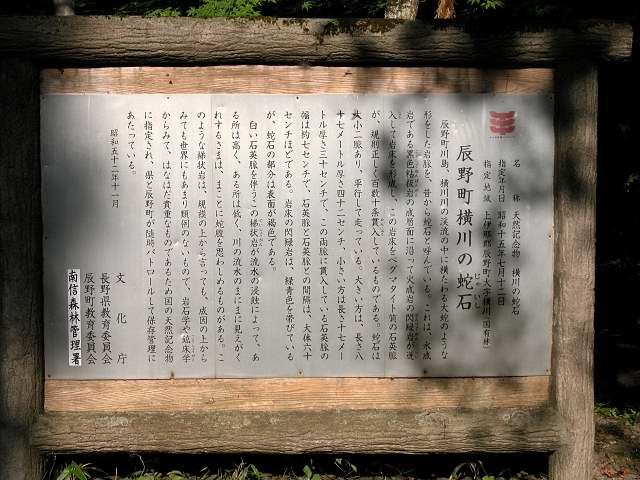 名称 天然記念物 横川の蛇石
指定年月日 昭和十五年七月十二日
指定地域 上伊那郡辰野町大字横川(国有林)
辰野町横川の蛇石
辰野町川島、横川川の渓流の中に横たわる大蛇のような
形をした岩脈を、昔から蛇石と呼んでいる。これは、水成
岩である黒色粘板岩の成層面に沿って火成岩の閃緑岩が迸
入して岩床を形成し、この岩床をペグマタイト質の石英脈
が、規則正しく百数十条貫入しているものである。蛇石は
大小二脈あり、平行して走っている。大きい方は、長さ八
十七メートル厚さ四十二センチ、小さい方は長さ十七メー
トル厚さ三十センチで、この両脈に貫入している石英脈の
幅は約七センチで、石英脈と石英脈との間隔は、大体六十
センチほどである。岩床の閃緑岩は、緑青色を帯びている
が、蛇石の部分は表面が褐色である。
白い石英脈を伴うこの梯状岩が流水の浸蝕によって、あ
る所は高く、ある所は低く、川の流水のまにまに見えがく
れするさまは、まことに蛇腹を思わしめるものがある。こ
のような梯状岩は、規模の上から言っても、成因の上から
みても世界にもあまり類例のないもので、岩石学や鉱床学
からみて、はなはだ貴重なものであるため国の天然記念物
に指定され、県と辰野町が随時パトロールして保存管理に
あたっている。
昭和五十二年十一月
文化庁
長野県教育委員会
辰野町教育委員会
南信森林管理署